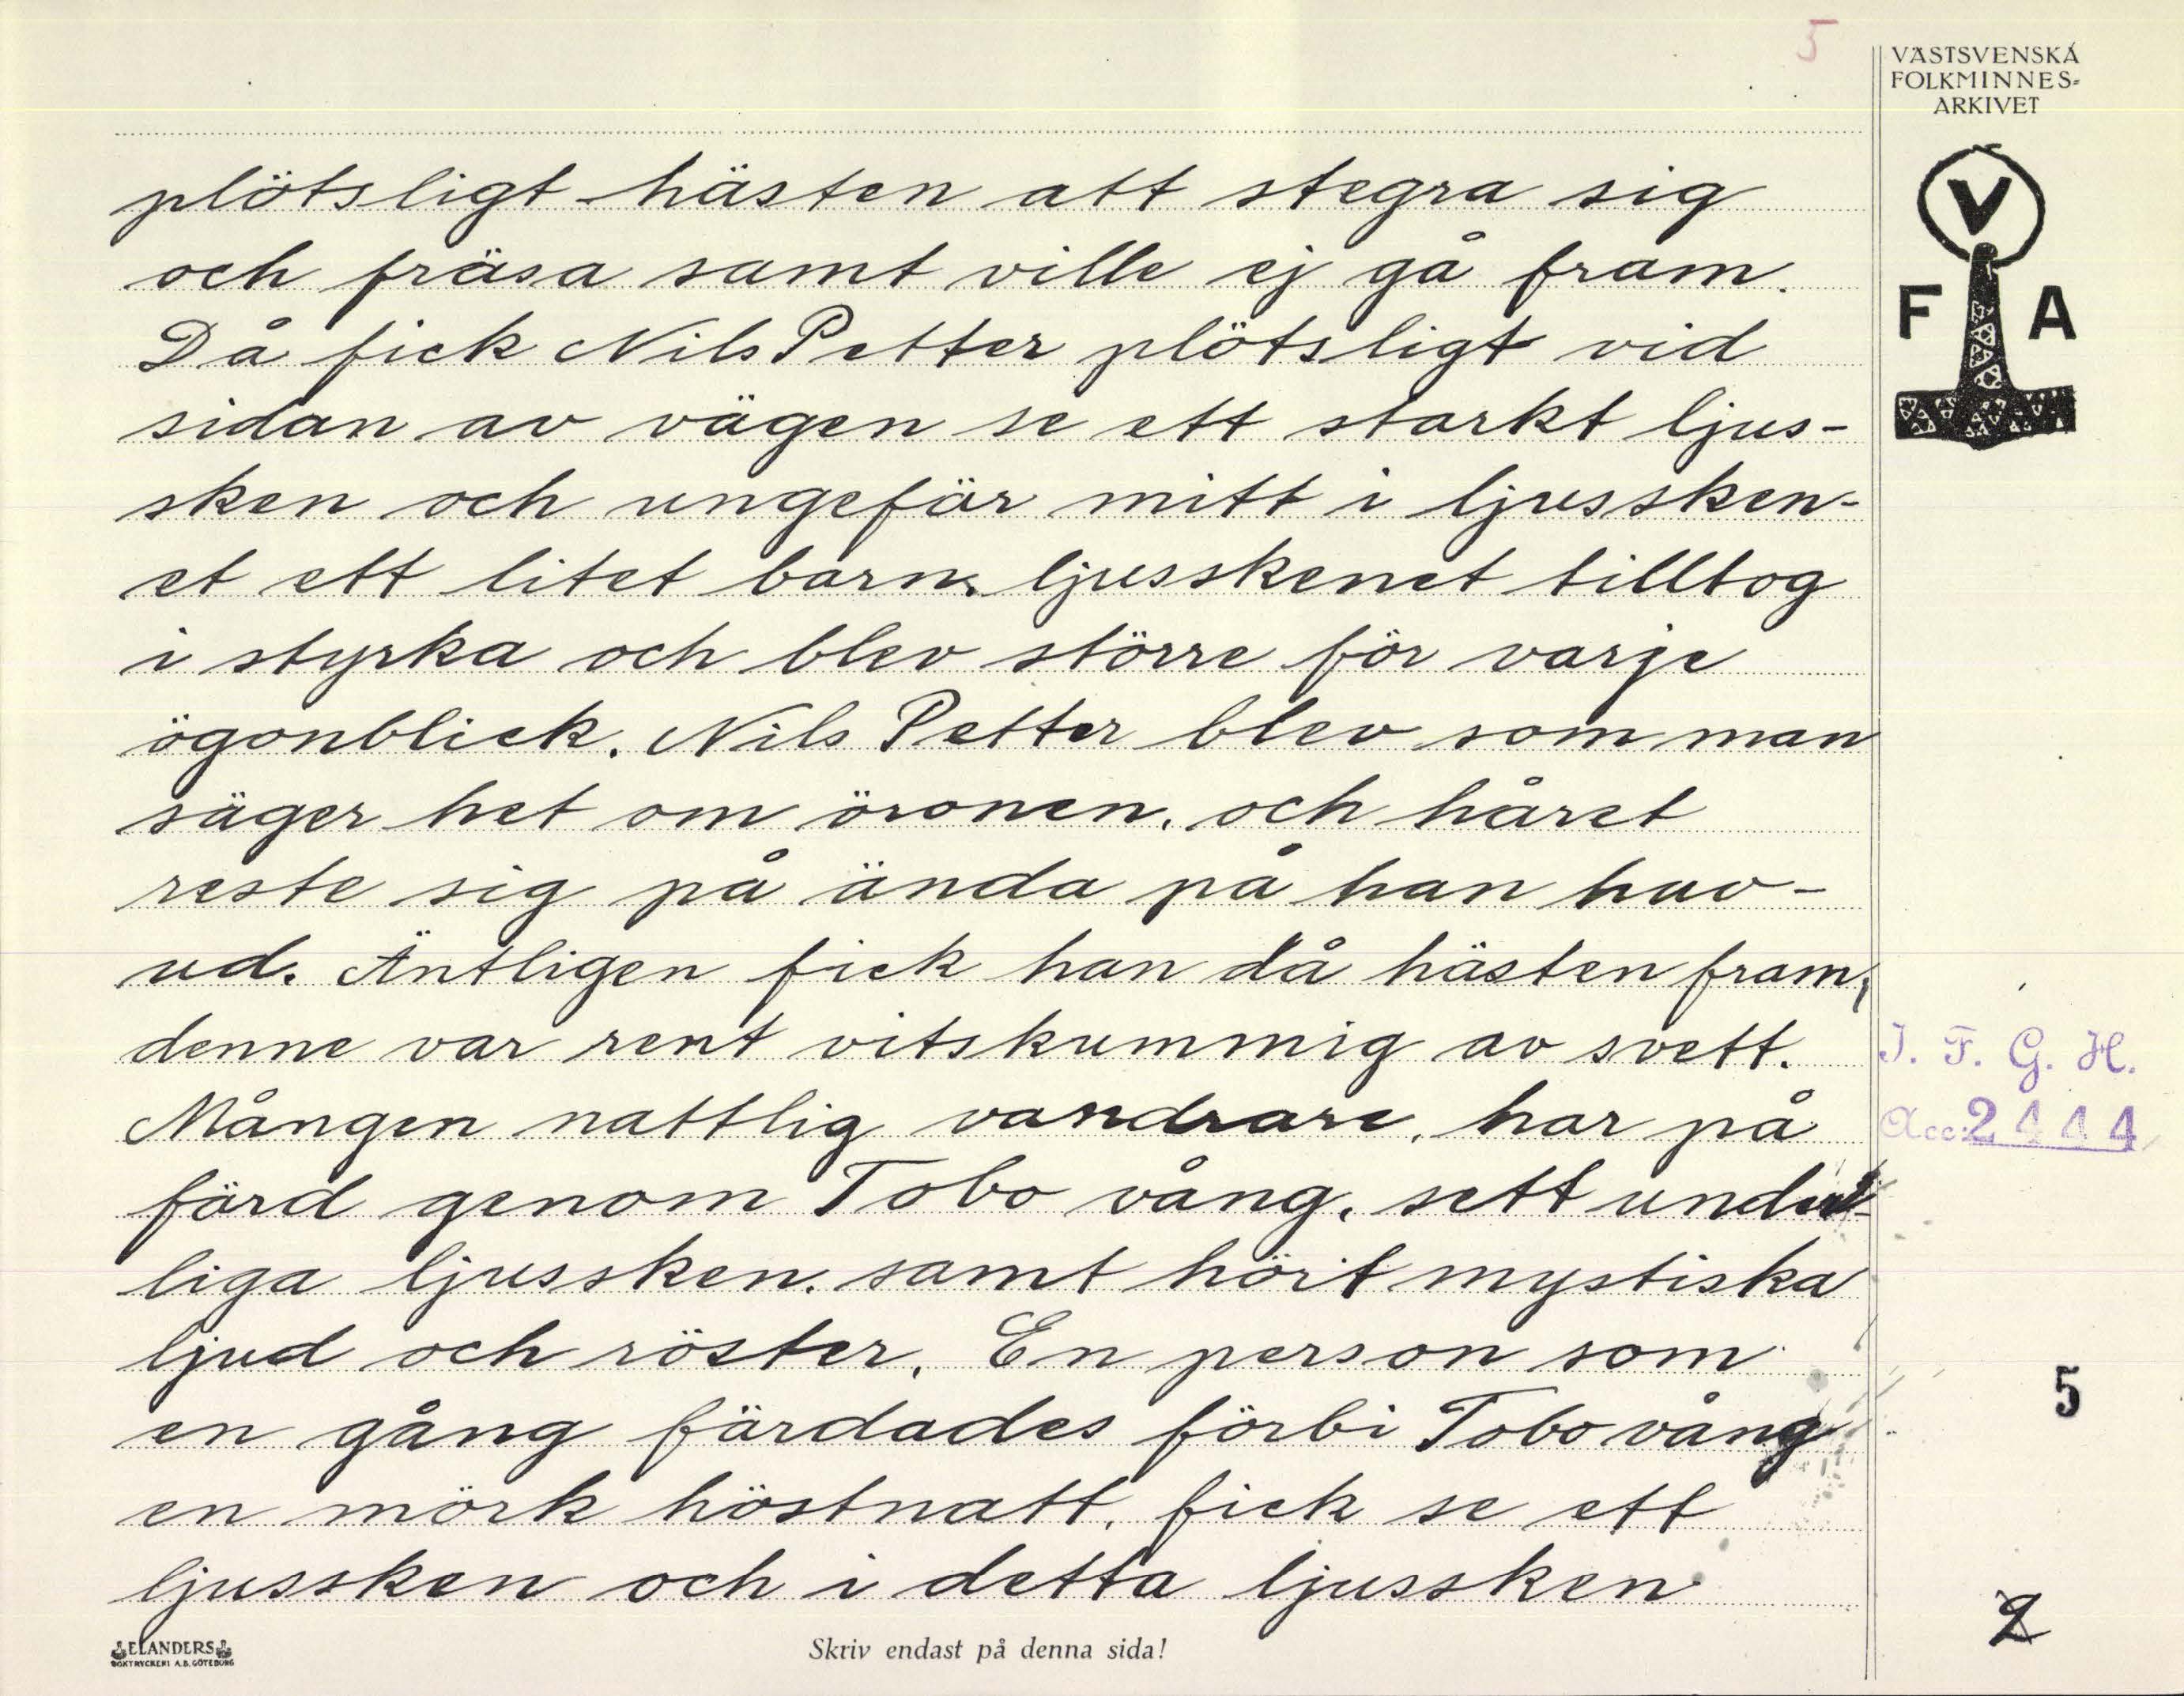 5
VÄSTSVENSKA
FOLKMINNES=
ARKIVET
V
F A
plötsligt hästen att stegra sig
och fräsa samt ville ej gå fram.
Då fick Nils Petter plötsligt vid
sidan av vägen se ett starkt ljus-
sken och ungefär mitt i ljussken-
et ett litet barn, ljusskenet tilltog
i styrka och blev större för varje
ögonblick. Nils Petter blev som man
säger het om öronen, och håret
reste sig på ända på han huv-
ud. Äntligen fick han då hästen fram,
denne var rent vitskummig av svett.
Mången nattlig vandrare, har på
färd genom Tobo vång, sett under-
liga ljussken, samt hört mystiska
ljud och röster. En person som
en gång färdades förbi Tobo vång
en mörk höstnatt, fick se ett
ljussken och i detta ljussken
I. F. G. H.
Acc: 2444
5
2
ELANDERS
BOKTRYCKERI A.B. GÖTEBORG
Skriv endast på denna sida!